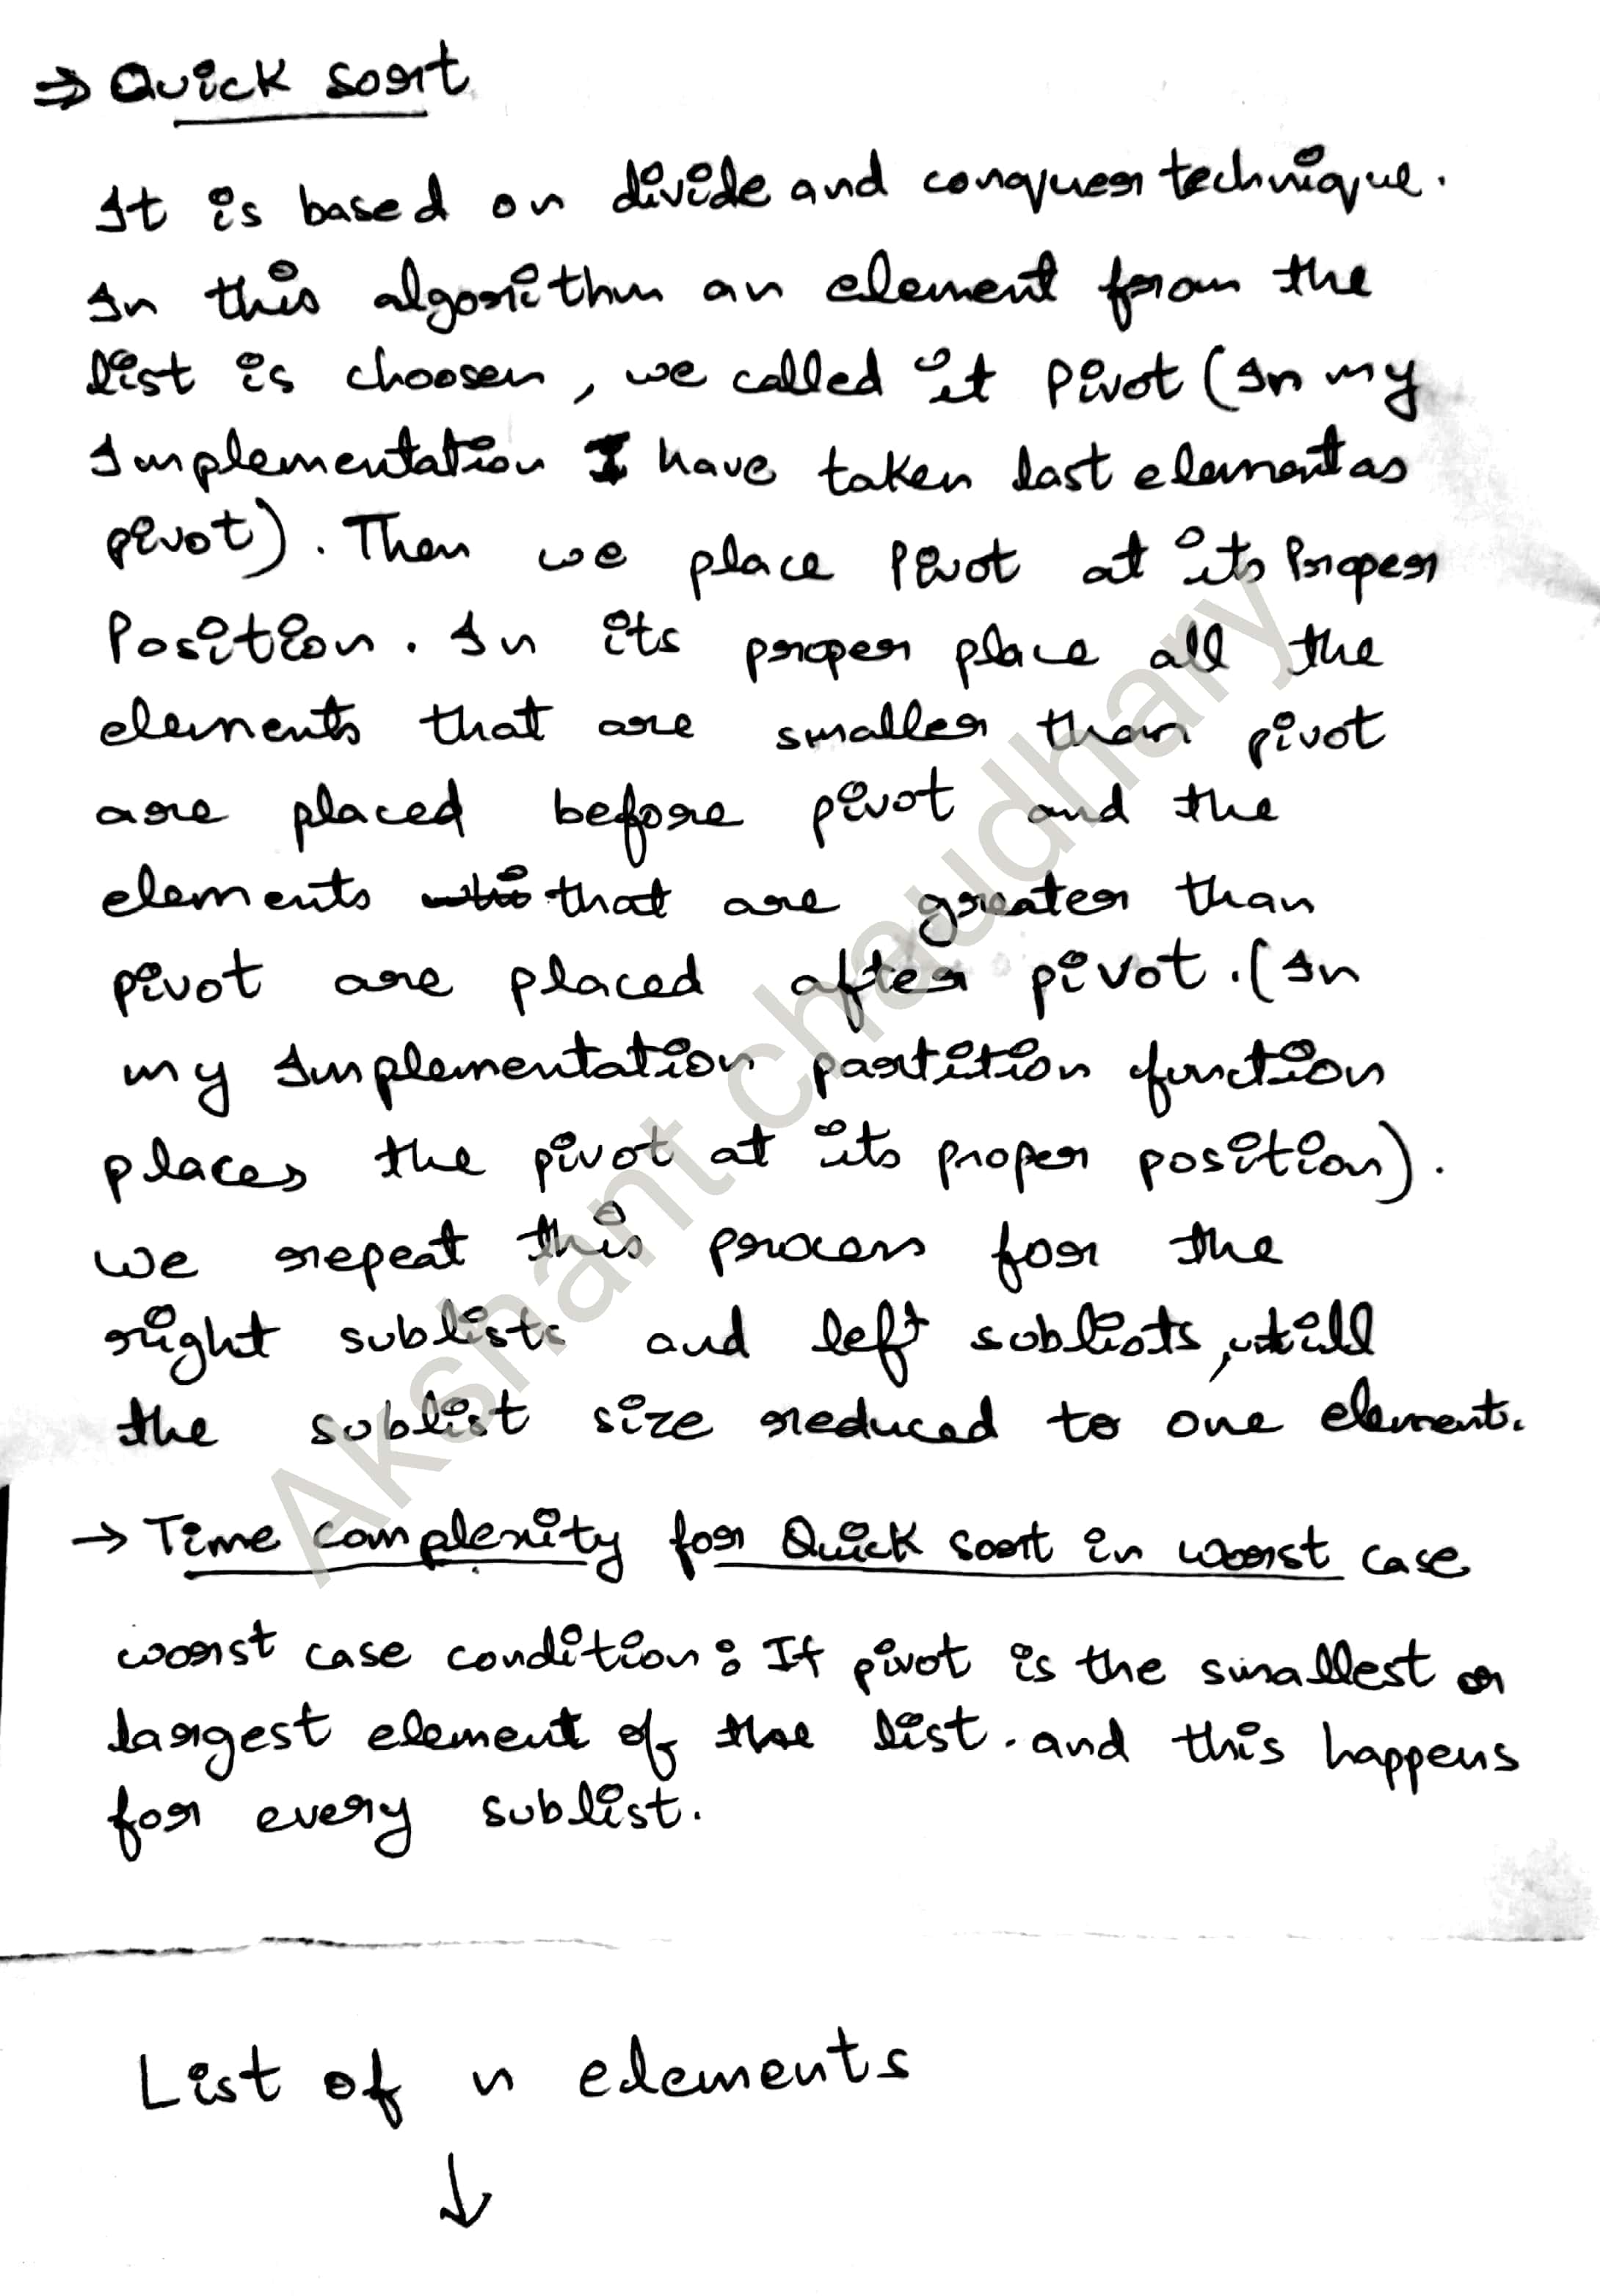 ⇒ Quick sort
It is based on divide and conquer technique.
In this algorithm an element from the
list is choosen, we called it Pivot (In my
Implementation I have taken last element as
pivot). Then we place Pivot at its Proper
Position. In its proper place all the
elements that are smaller than pivot
are placed before pivot and the
elements that are greater than
pivot are placed after pivot. (In
my Implementation partition function
places the pivot at its proper position).
we repeat this process for the
right sublists and left sublists, till
the sublist size reduced to one element.
→ Time complexity for Quick sort in worst case
worst case condition: If pivot is the smallest or
largest element of the list. and this happens
for every sublist.
List of n elements
↓
Akshant chaudhary